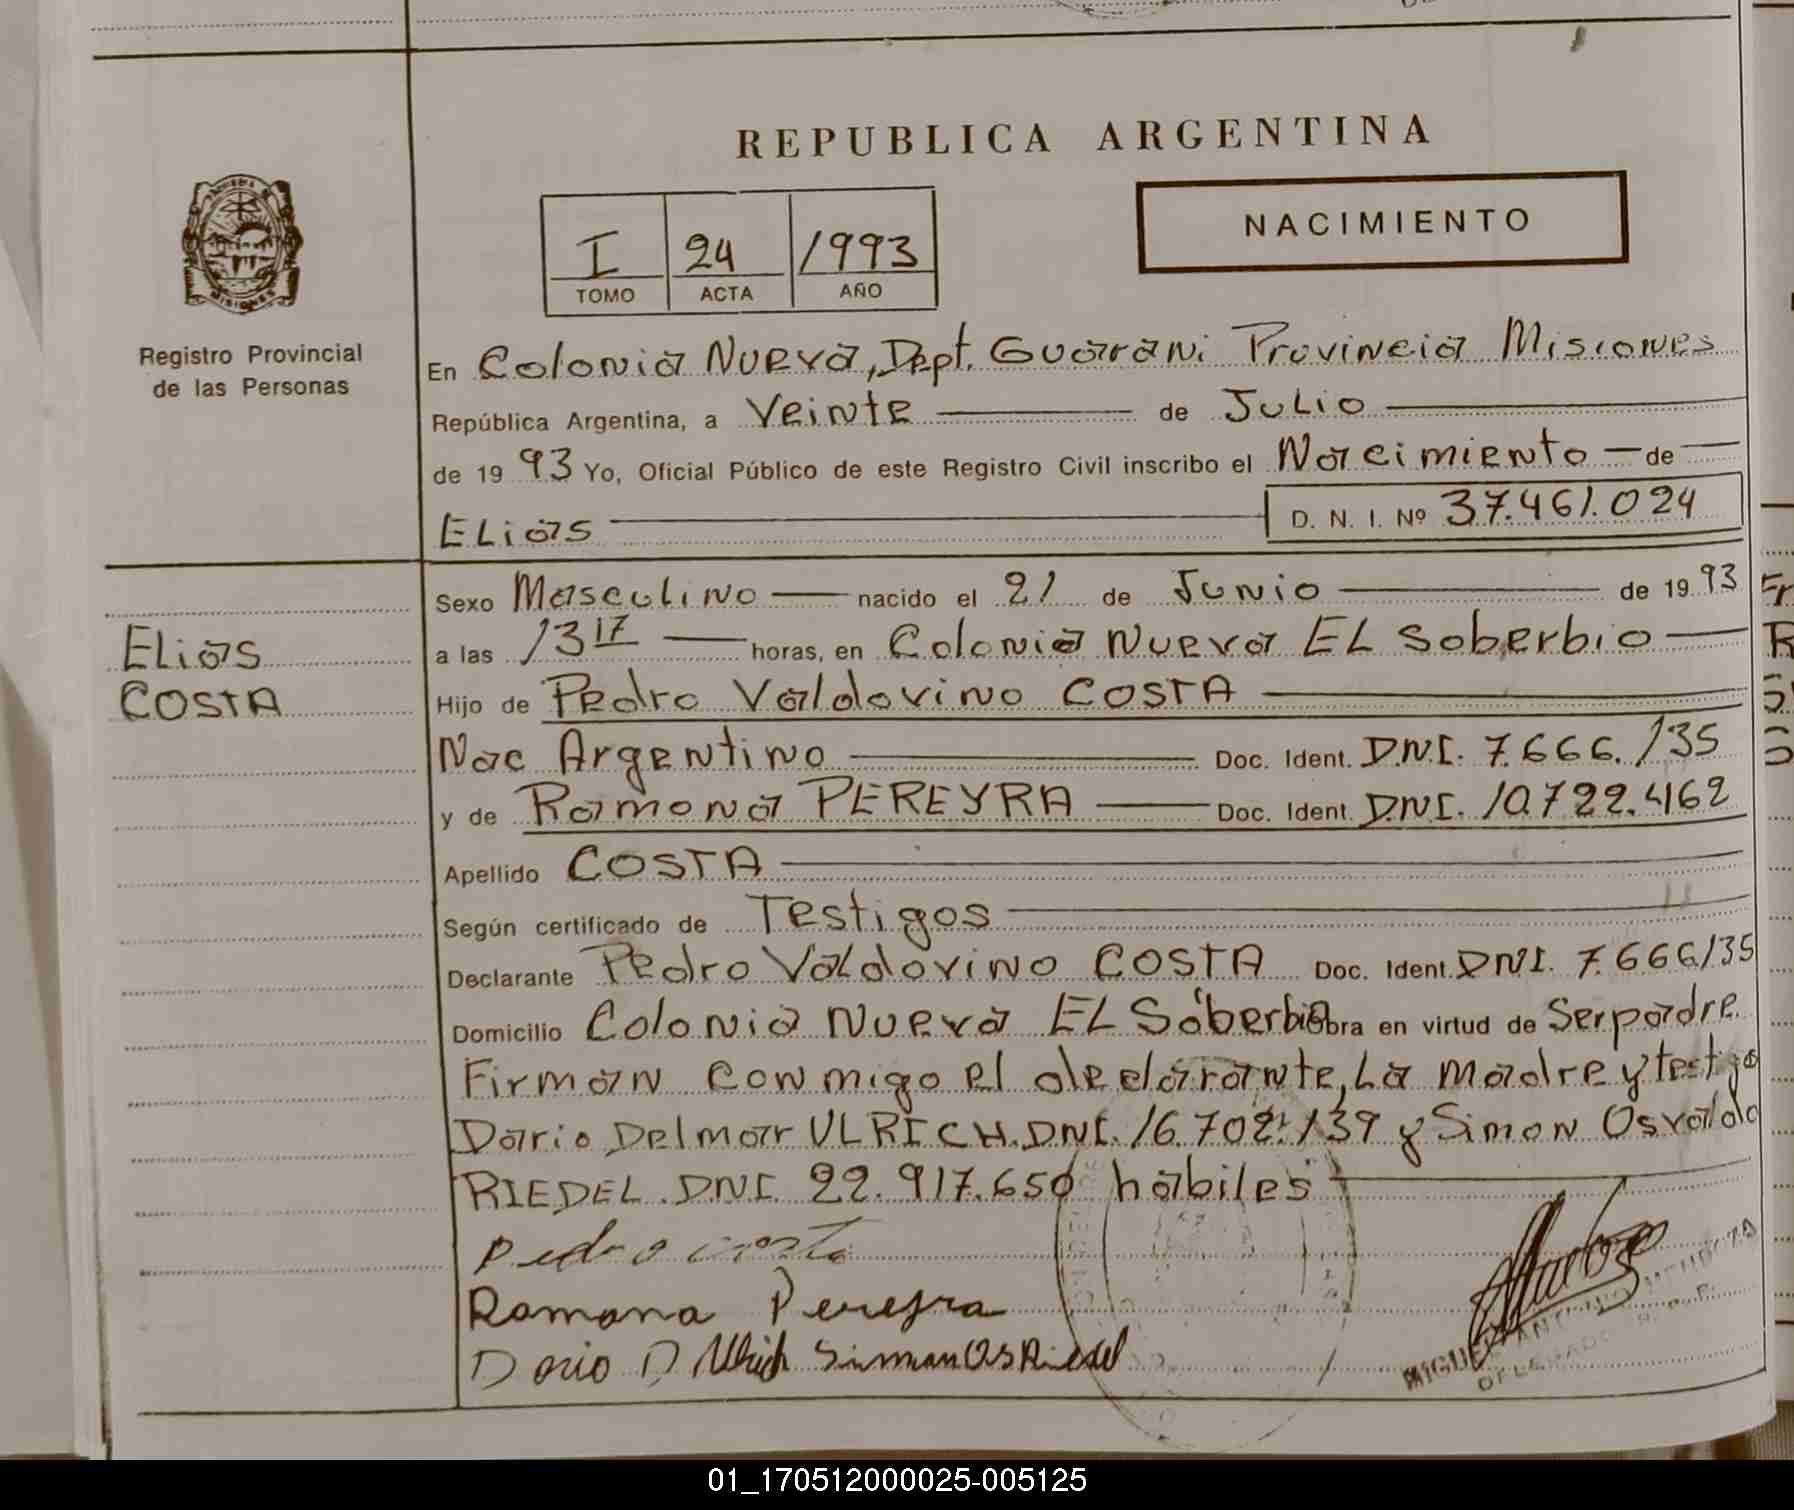 REPUBLICA ARGENTINA
NACIMIENTO
I 24 1993
TOMO ACTA AÑO
Registro Provincial
de las Personas
En Colonia Nueva, Dept. Guarani Provincia Misiones
República Argentina, a Veinte de Julio
de 19 93 Yo, Oficial Público de este Registro Civil inscribo el Nacimiento de
ELias D. N. I. Nº 37.461.024
Elias
COSTA
Sexo Masculino nacido el 21 de Junio de 19 93
a las 13 17 horas, en Colonia Nueva EL Soberbio
Hijo de Pedro Valdovino COSTA
Nac Argentino Doc. Ident. D.N.I. 7.666.135
y de Ramona PEREYRA Doc. Ident. D.N.I. 10.722.462
Apellido COSTA
Según certificado de Testigos
Declarante Pedro Valdovino COSTA Doc. Ident. DNI. 7.666.135
Domicilio Colonia Nueva EL Soberbio Obra en virtud de Ser padre
Firman conmigo el declarante, La Madre y testigo
Dario Delmar ULRICH. DNI. 16.702.139 y Simon Osvaldo
RIEDEL. DNI. 22.917.650 habiles
Pedro Costa
Ramona Pereyra
Dario D Ulrich Simon Os Riedel
MIGUEL ANTONIO MENDOZA
DELEGADO R. P.
01_170512000025-005125